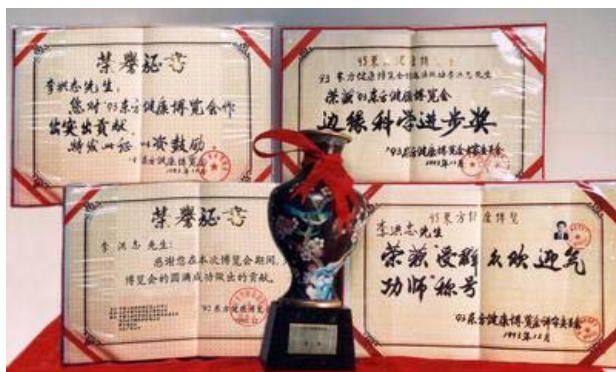 荣誉证书
李洪志先生:
您对'93东方健康博览会作
出突出贡献,
特发此证 以资鼓励。
东方健康博览会
1993年12月
93东方健康博览会
荣获'93东方健康博览会
边缘科学进步奖
'93东方健康博览会评审委员会
1993年12月
荣誉证书
李洪志先生:
感谢您在本次博览会期间,
博览会的圆满成功做出的贡献。
'92东方健康博览
93东方健康博览
李洪志先生
荣获"受群众欢迎气
功师"称号
'93东方健康博览会评审委员会
1993年12月